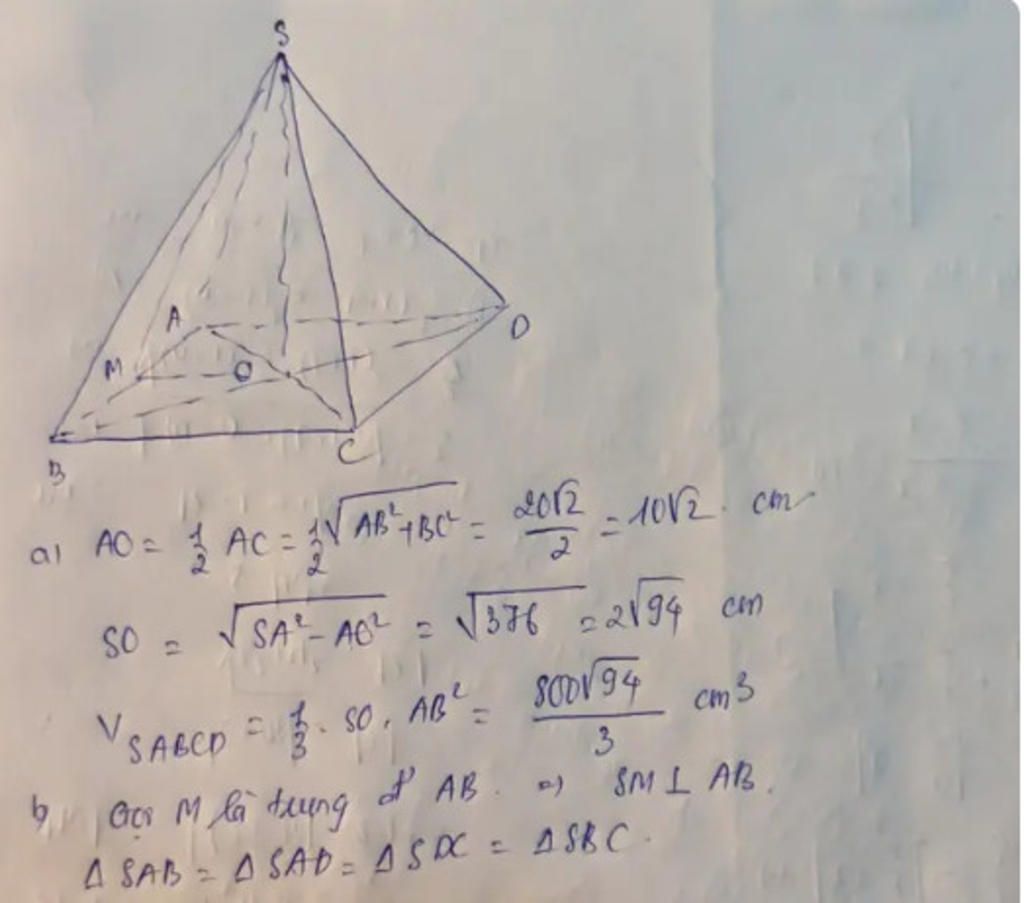 S
A
D
M
O
B
C
a) AO = 1/2 AC = 1/2 √(AB² + BC²) = 20√2/2 = 10√2 cm
SO = √(SA² - AO²) = √376 = 2√94 cm
V SABCD = 1/3 . SO . AB² = 800√94/3 cm³
b) Gọi M là trung đ' AB. => SM ⊥ AB.
Δ SAB = Δ SAD = Δ SDC = Δ SBC.